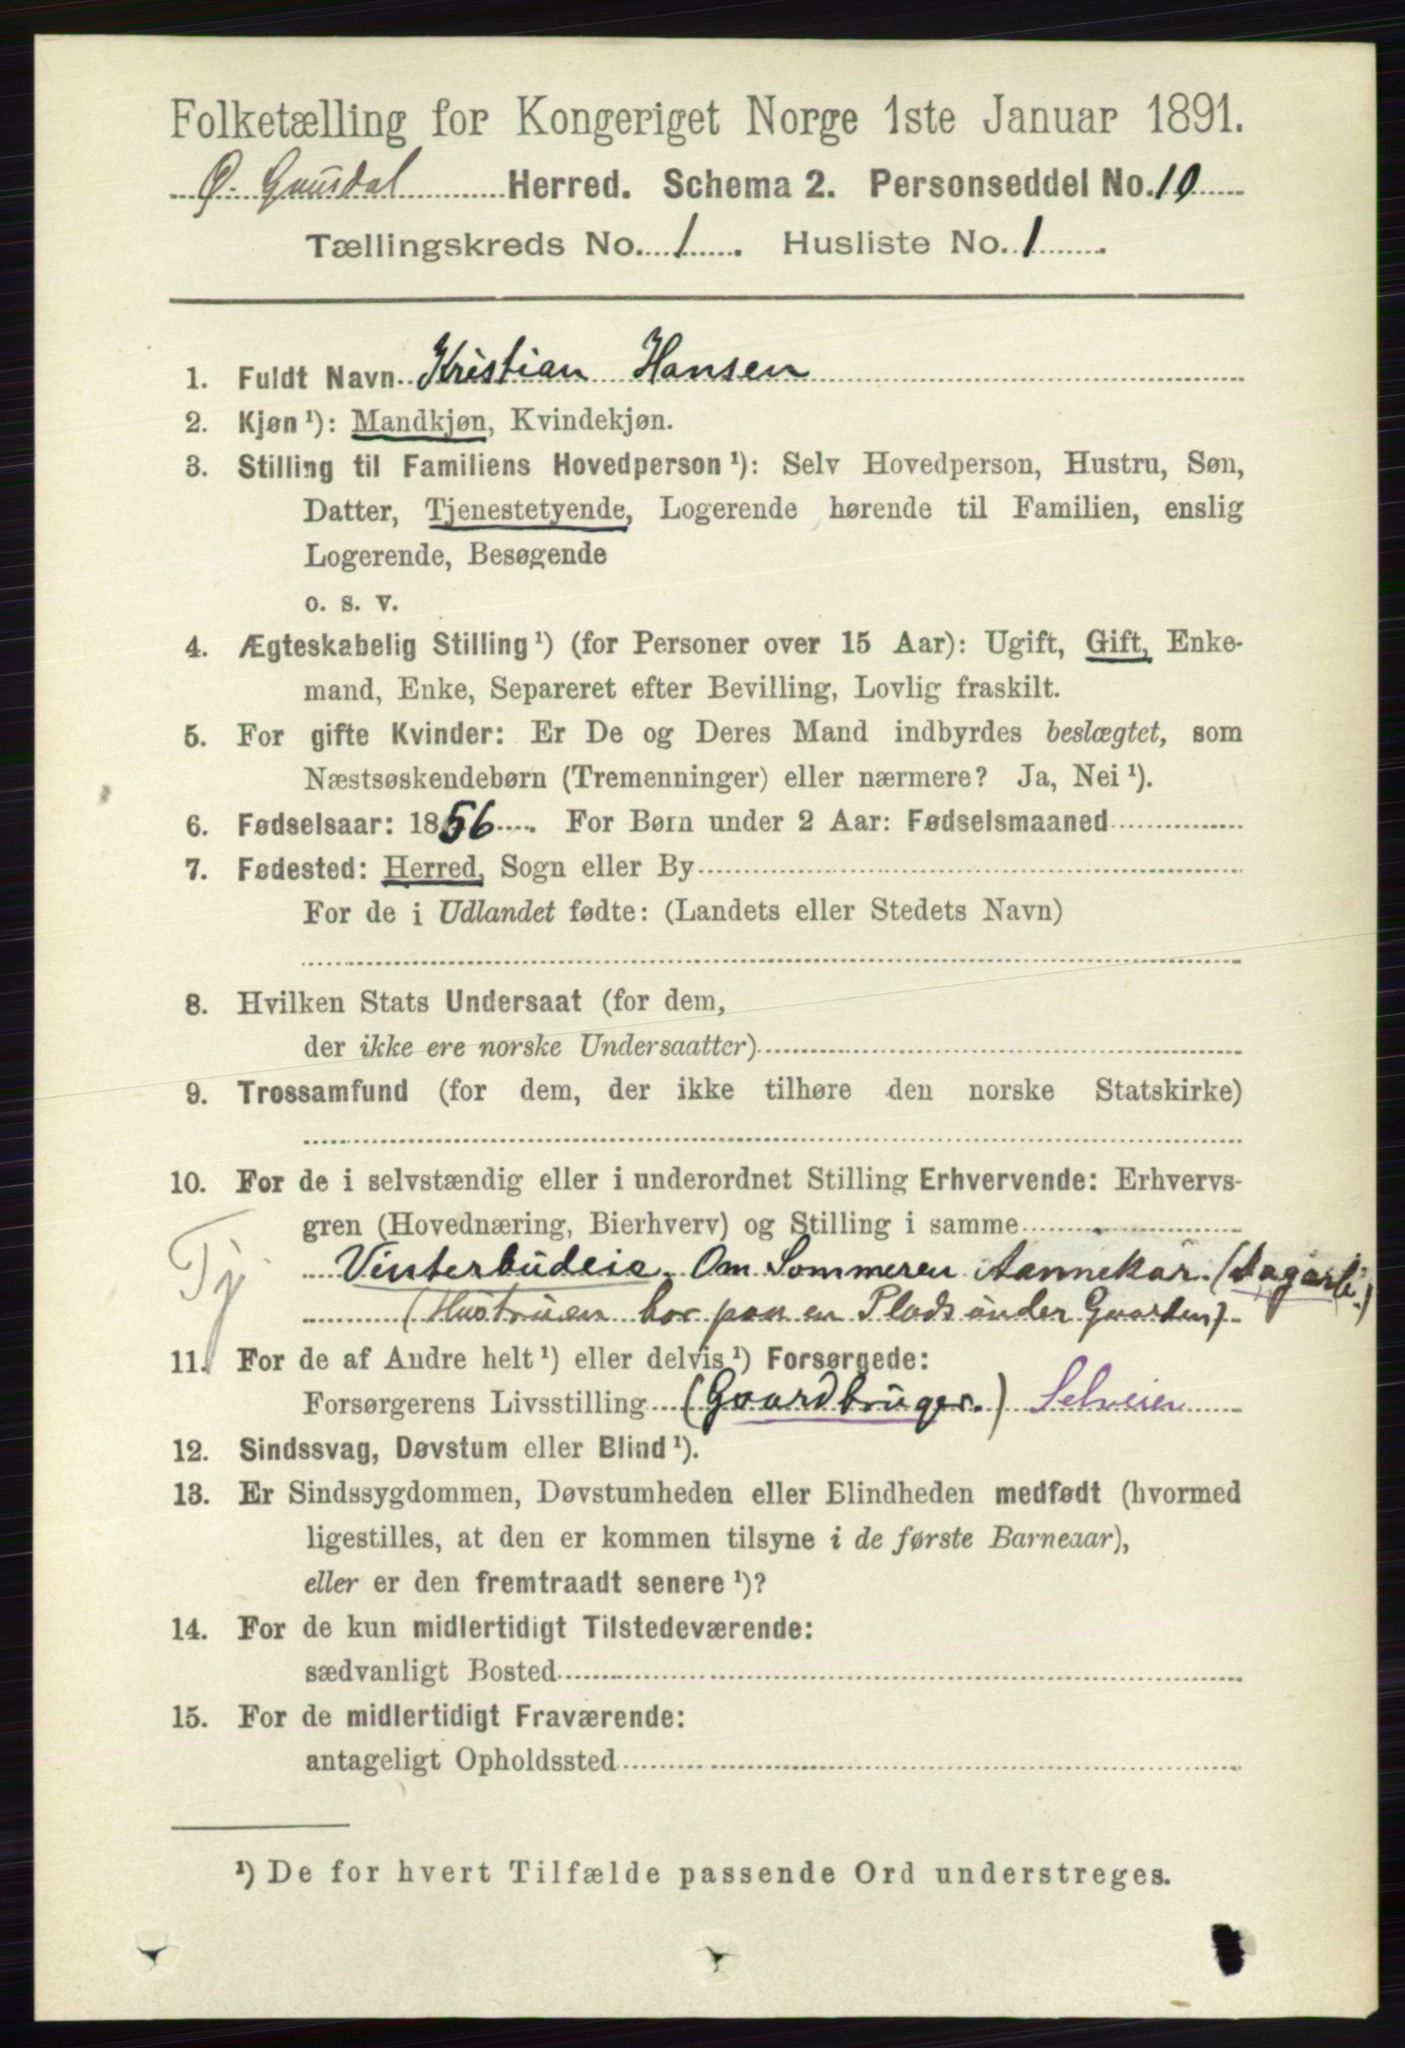 Folketælling for Kongeriget Norge 1ste Januar 1891.
Ø. Gausdal Herred. Schema 2. Personseddel No. 10
Tællingskreds No. 1. Husliste No. 1.
1. Fuldt Navn Kristian Hansen
2. Kjøn ¹): Mandkjøn, Kvindekjøn.
3. Stilling til Familiens Hovedperson ¹): Selv Hovedperson, Hustru, Søn,
Datter, Tjenestetyende, Logerende hørende til Familien, enslig
Logerende, Besøgende
o. s. v.
4. Ægteskabelig Stilling ¹) (for Personer over 15 Aar): Ugift, Gift, Enke-
mand, Enke, Separeret efter Bevilling, Lovlig fraskilt.
5. For gifte Kvinder: Er De og Deres Mand indbyrdes beslægtet, som
Næstsøskendebørn (Tremenninger) eller nærmere? Ja, Nei ¹).
6. Fødselsaar: 1856. For Børn under 2 Aar: Fødselsmaaned
7. Fødested: Herred, Sogn eller By
For de i Udlandet fødte: (Landets eller Stedets Navn)
8. Hvilken Stats Undersaat (for dem,
der ikke ere norske Undersaatter)
9. Trossamfund (for dem, der ikke tilhøre den norske Statskirke)
10. For de i selvstændig eller i underordnet Stilling Erhvervende: Erhvervs-
gren (Hovednæring, Bierhverv) og Stilling i samme
Tj Vinterbudeie. Om Sommeren Aannekar. (Dagarb.)
(Hustruen bor paa en Plads under Gaarden).
11. For de af Andre helt ¹) eller delvis ¹) Forsørgede:
Forsørgerens Livsstilling (Gaardbruger.) Selveier
12. Sindssvag, Døvstum eller Blind ¹).
13. Er Sindssygdommen, Døvstumheden eller Blindheden medfødt (hvormed
ligestilles, at den er kommen tilsyne i de første Barneaar),
eller er den fremtraadt senere ¹)?
14. For de kun midlertidigt Tilstedeværende:
sædvanligt Bosted
15. For de midlertidigt Fraværende:
antageligt Opholdssted
¹) De for hvert Tilfælde passende Ord understreges.